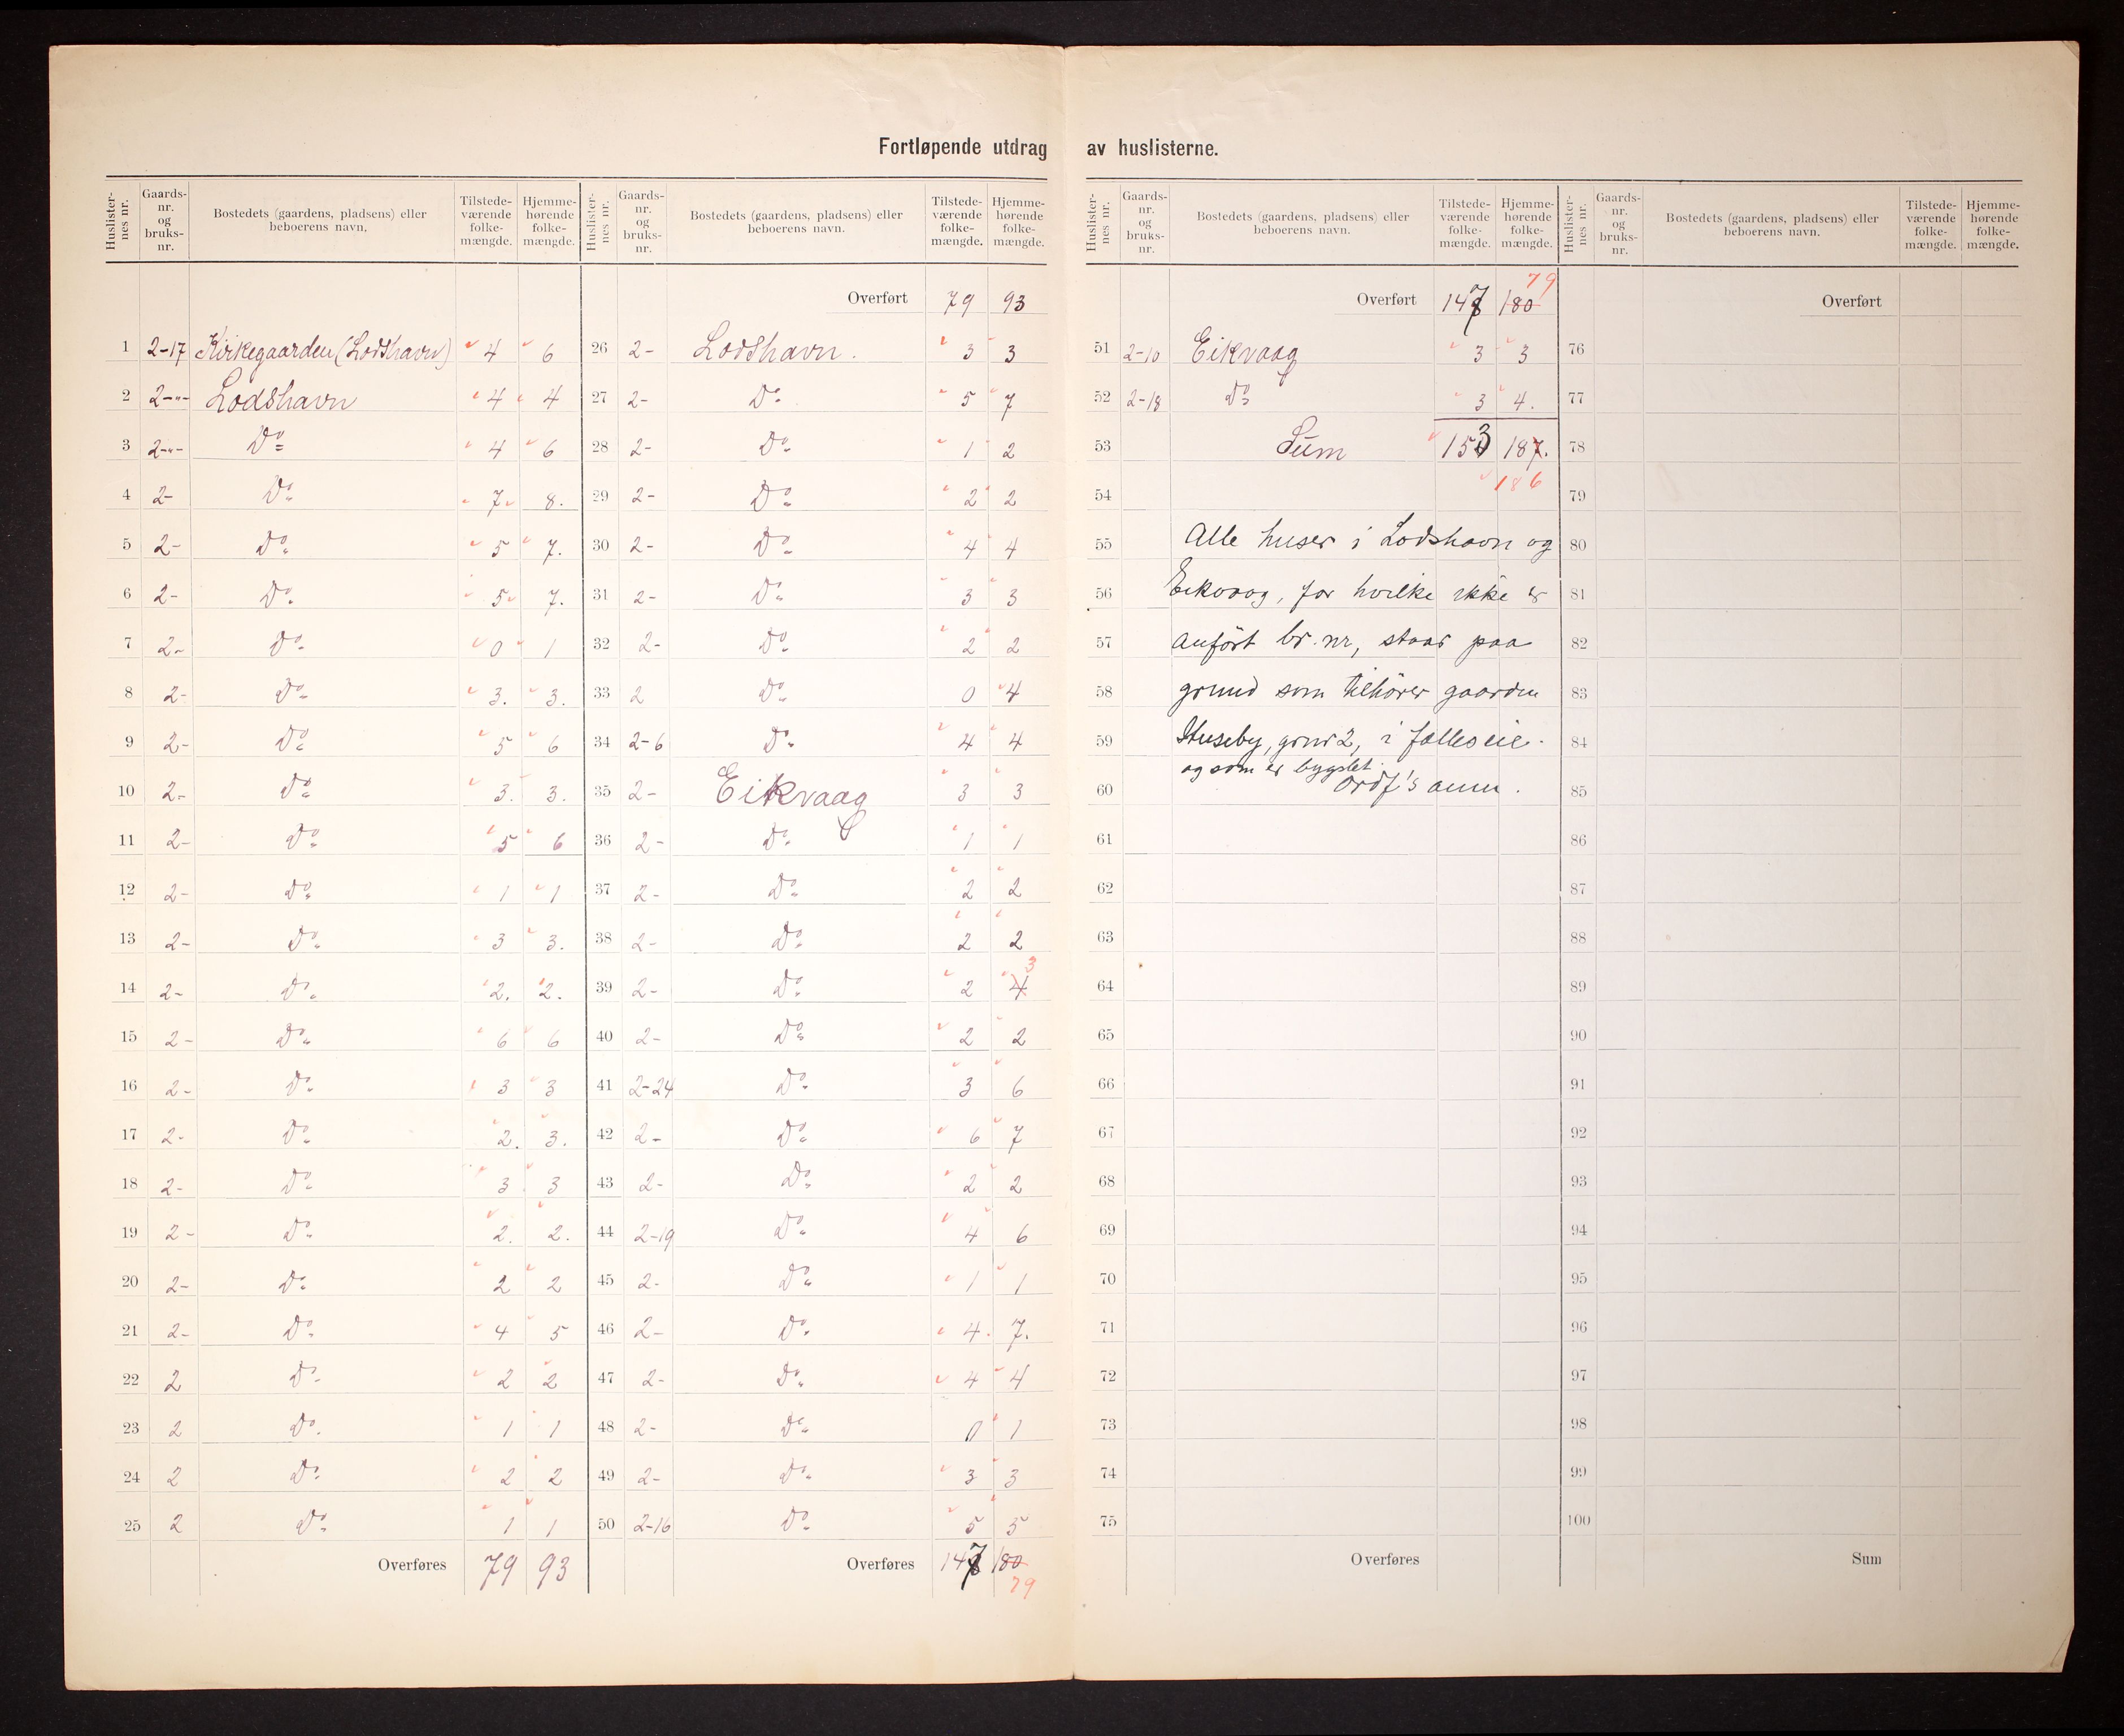 Fortløpende utdrag av huslisterne.
Huslisternes nr. Gaards-nr. og bruks-nr. Bostedets (gaardens, pladsens) eller beboerens navn. Tilstedeværende folkemængde. Hjemmehørende folkemængde.
1 2-17 Kirkegaarden (Lodshavn) 4 6
2 2-"- Lodshavn 4 4
3 2-"- Do 4 6
4 2- Do 7 8.
5 2- Do 5 7.
6 2- Do 5 7.
7 2- Do 0 1
8 2- Do 3. 3.
9 2- Do 5 6
10 2- Do 3. 3.
11 2- Do 5 6
12 2- Do 1 1
13 2- Do 3 3.
14 2- Do 2. 2.
15 2- Do 6 6
16 2- Do 3 3
17 2- Do 2. 3.
18 2- Do 3 3
19 2- Do 2. 2.
20 2- Do 2 2
21 2- Do 4 5
22 2 Do 2 2
23 2 Do 1 1
24 2 Do 2 2
25 2 Do 1 1
Overføres 79 93
Huslisternes nr. Gaards-nr. og bruks-nr. Bostedets (gaardens, pladsens) eller beboerens navn. Tilstedeværende folkemængde. Hjemmehørende folkemængde.
Overført 79 93
26 2- Lodshavn. 3 3
27 2- Do 5 7
28 2- Do 1 2
29 2- Do 2 2
30 2- Do 4 4
31 2- Do 3 3
32 2- Do 2 2
33 2 Do 0 4
34 2-6 Do 4 4
35 2- Eikvaag 3 3
36 2- Do 1 1
37 2- Do 2 2
38 2- Do 2 2
39 2- Do 2 4 3
40 2- Do 2 2
41 2-24 Do 3 6
42 2- Do 6 7
43 2- Do 2 2
44 2-19 Do 4 6
45 2- Do 1 1
46 2- Do 4. 7.
47 2- Do 4 4
48 2- Do 0 1
49 2- Do 3 3
50 2-16 Do 5 5
Overføres 147 180
79
Huslisternes nr. Gaards-nr. og bruks-nr. Bostedets (gaardens, pladsens) eller beboerens navn. Tilstedeværende folkemængde. Hjemmehørende folkemængde.
79
Overført 147 180
51 2-10 Eikvaag 3 3
52 2-18 Do 3 4.
53 Sum 153 187.
54 186
55 Alle huser i Lodshavn og
56 Eikvaag, for hvilke ikke er
57 anført br. nr, staar paa
58 grund som tilhører gaarden
59 Huseby, gnr 2, i fælleseie.
og som er bygslet.
60 Ordf's anm.
61
62
63
64
65
66
67
68
69
70
71
72
73
74
75
Overføres
Huslisternes nr. Gaards-nr. og bruks-nr. Bostedets (gaardens, pladsens) eller beboerens navn. Tilstedeværende folkemængde. Hjemmehørende folkemængde.
Overført
76
77
78
79
80
81
82
83
84
85
86
87
88
89
90
91
92
93
94
95
96
97
98
99
100
Sum